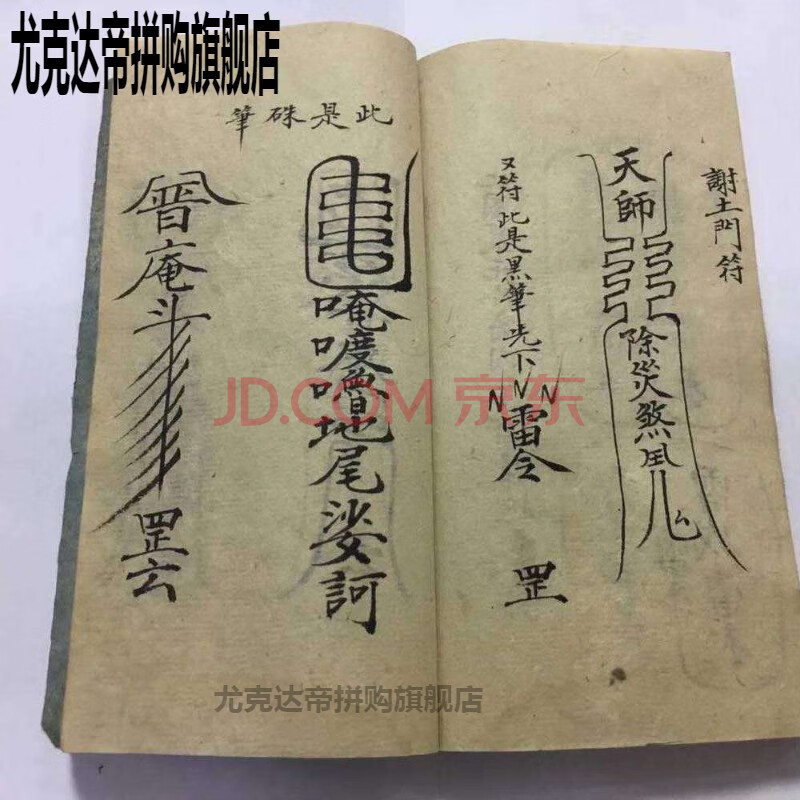 尤克达帝拼购旗舰店
謝土門符
天師
除災煞
又符此是黑筆先下
雷令
罡
此是硃筆
唵𠼝嚕地尾娑訶
普庵斗
罡云
JD.COM 京东
尤克达帝拼购旗舰店